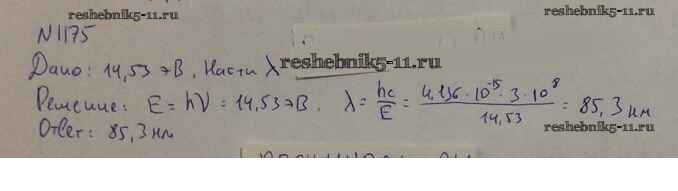 reshebnik5-11.ru
reshebnik5-11.ru
N1175
reshebnik5-11.ru
Дано: 14,53 эВ, Найти λ
Решение: E = hν = 14,53 эВ. λ = hc/E = 4,136 · 10^-15 · 3 · 10^8 / 14,53 = 85,3 нм
Ответ: 85,3 нм
reshebnik5-11.ru